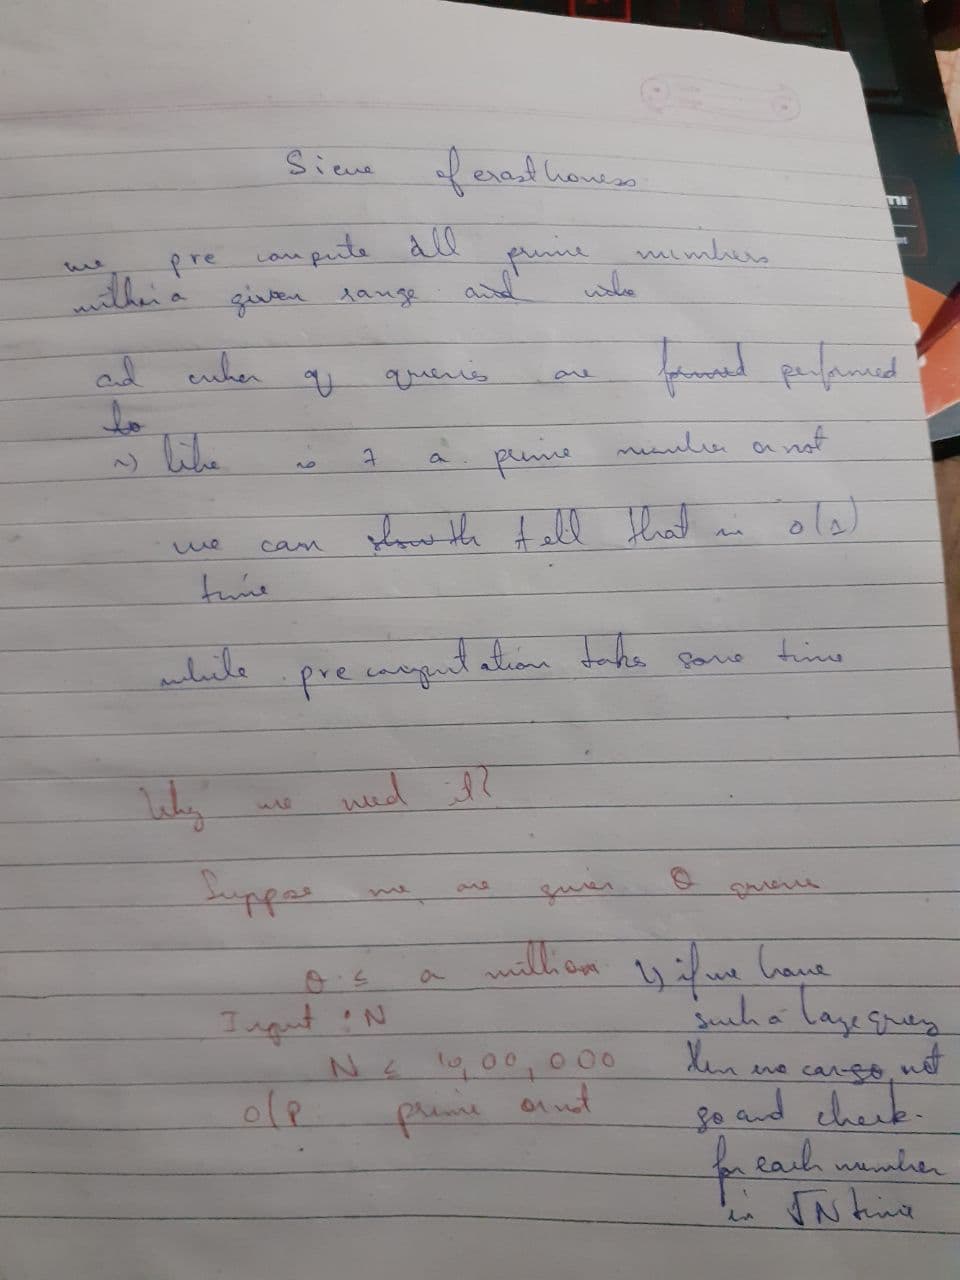 Sieve of erasthoness
we pre compute all prime numbers
within a given range and whe
and when q queries are formed performed
to
→) like is 7 a prime number or not
we can show th tell that in o(1)
time
while precomputation take some time
Why we need it?
Suppose we are given Q queries
Q ≤ a million
Input : N
N ≤ 10,00,000
O/P prime or not
↳) if we have
such a large query
then we can go not
go and check
for each number
in √N time